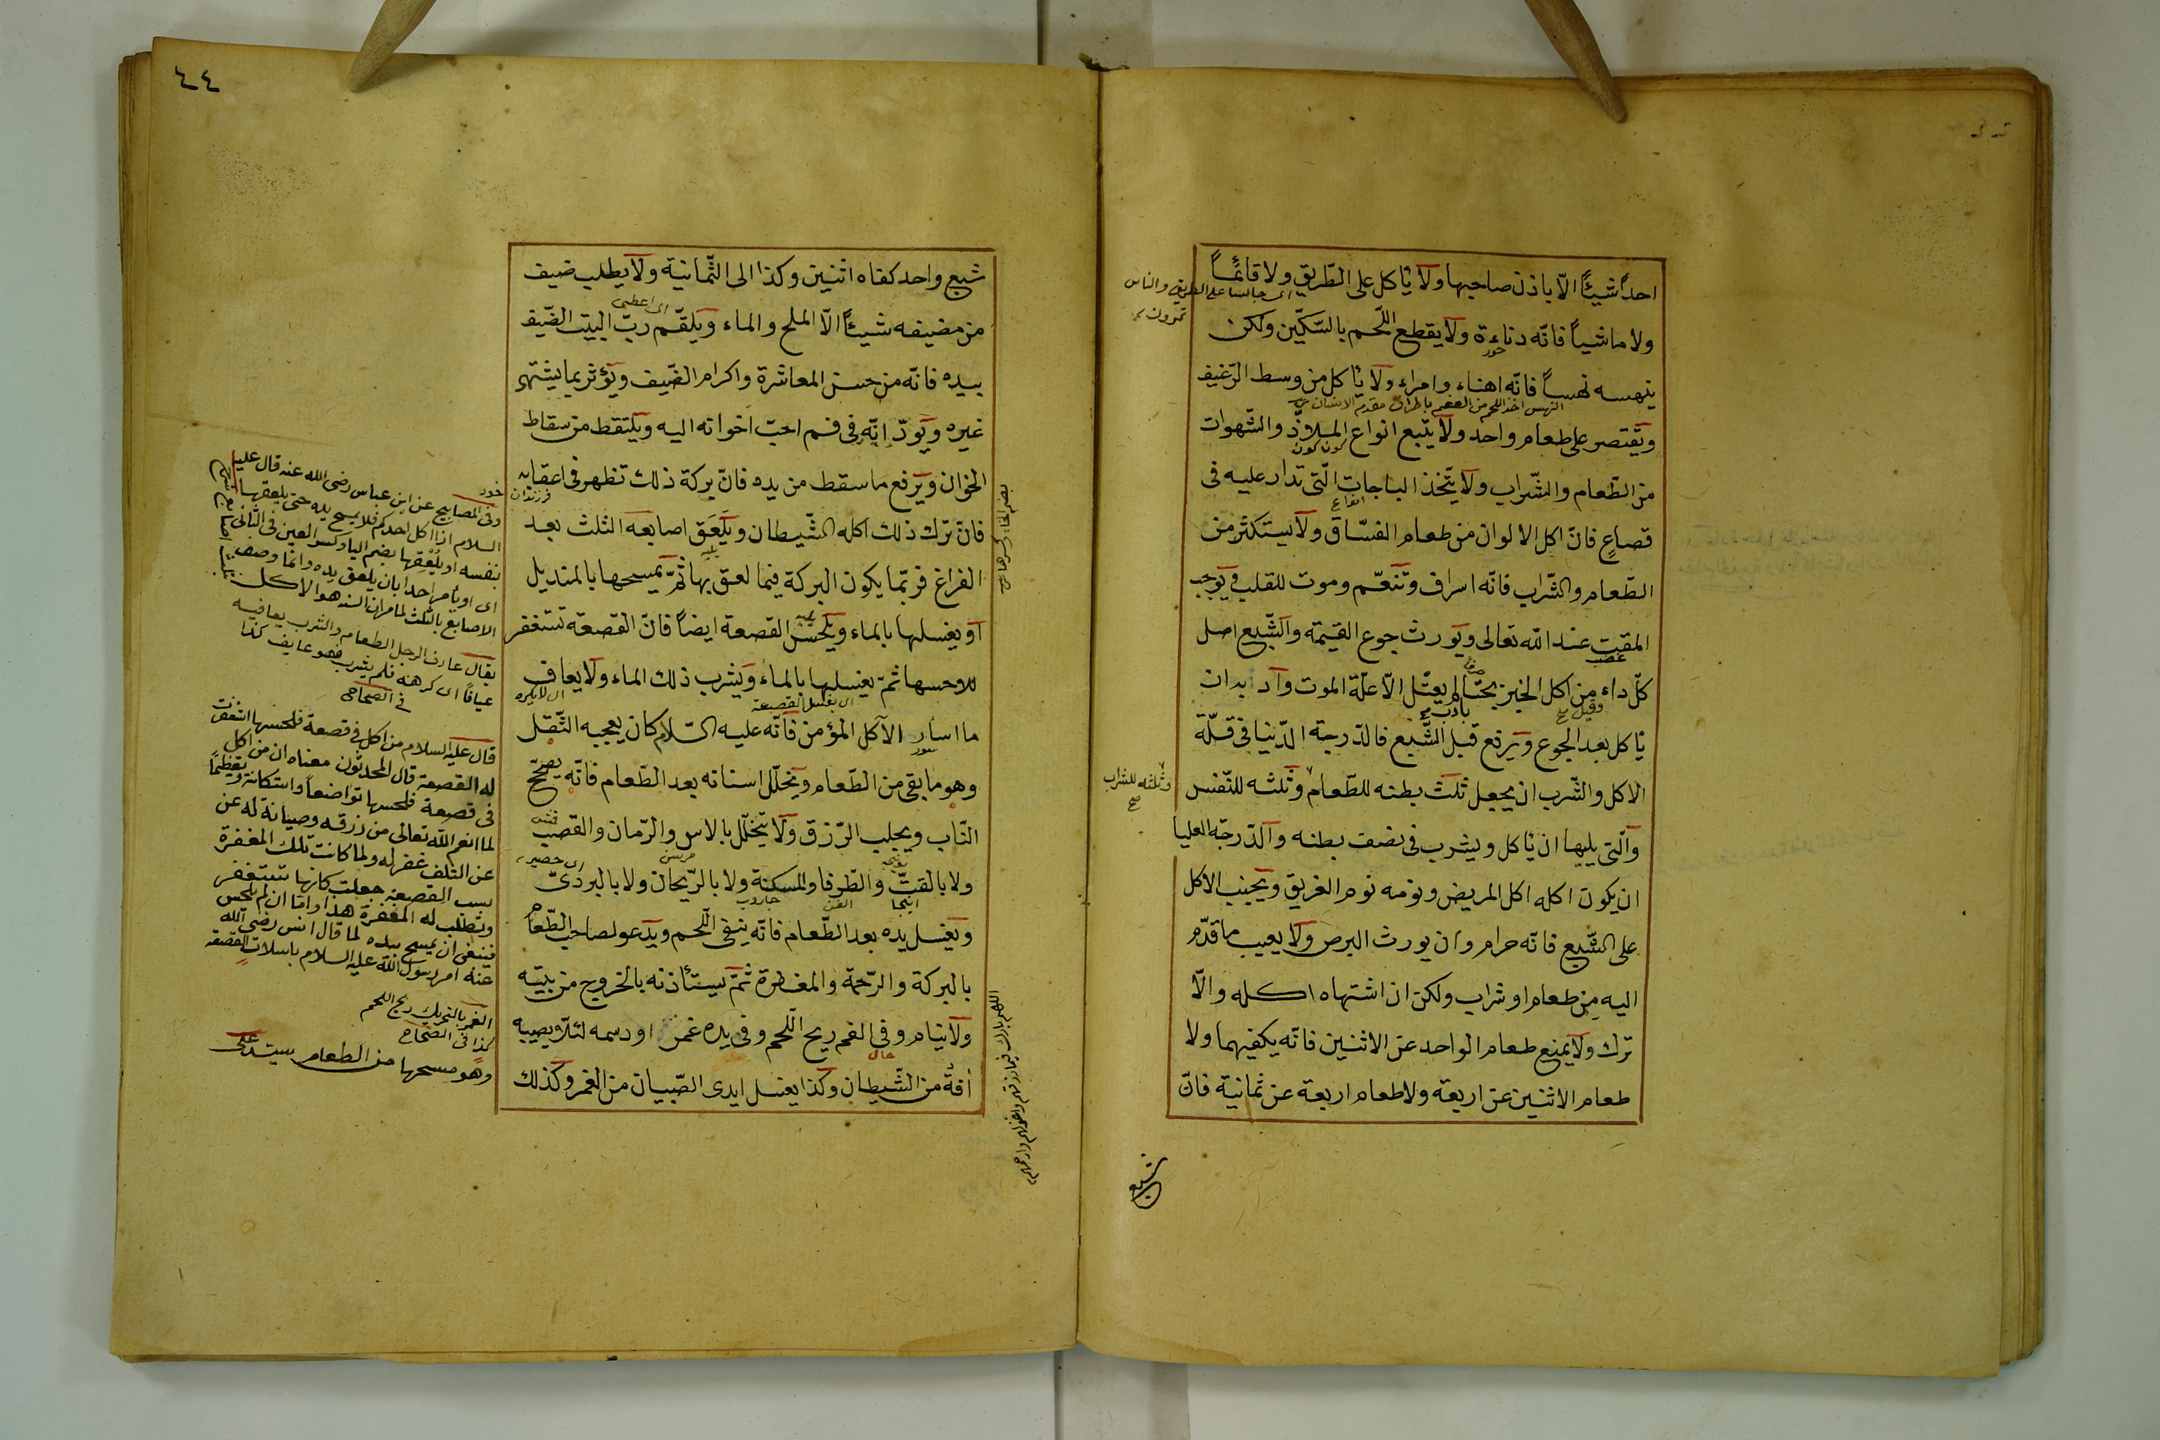 احدا شيئًا الّا باذن صاحبها ولا يأكل على الطّريق ولا قائمًا
ولا ماشيًا فانّه دناءة ولا يقطع اللّحم بالسّكّين ولكن
ينهسه نهسًا فانّه اهناء وامراء ولا يأكل من وسط الرّغيف
ويقتصر على طعام واحد ولا يتّبع انواع الملاذّ والشّهوات
من الطّعام والشّراب ولا يتّخذ الباجات الّتى تدار عليه فى
قصاع فانّ اكل الالوان من طعام الفسّاق ولا يستكثر من
الطّعام والشّراب فانّه اسراف وتنعّم وموت للقلب ويوجب
المقت عند اللّه تعالى ويورث جوع القيمة والشّبع اصل
كلّ داء من اكل الخبز بحتًا لم يعتلّ الّا علّة الموت وآدابه ان
يأكل بعد الجوع ويرفع قبل الشّبع فالدّرجة الدّنيا فى قلّة
الاكل والشّرب ان يجعل ثلث بطنه للطّعام وثلثه للنّفس
والّتى يليها ان يأكل ويشرب فى نصف بطنه والدّرجة العليا
ان يكون اكله اكل المريض ونومه نوم الغريق ويجتنب الاكل
على الشّبع فانّه حرام وان يورث البرص ولا يعيب ما قدّم
اليه من طعام او شراب ولكن ان اشتهاه اكله والّا
ترك ولا يمنع طعام الواحد عن الاثنين فانّه يكفيهما ولا
طعام الاثنين عن اربعة ولا طعام اربعة عن ثمانية فانّ
شبع
اى جالسا على الطريق والناس
يمرون
النهس اخذ اللحم من العظم باطراف مقدم الاسنان
انواع
وثلثه للشراب
صح
٤٤
شبع واحد كفاه اثنين وكذا الى الثّمانية ولا يطلب ضيف
من مضيفه شيئًا الّا الملح والماء ويلقّم ربّ البيت الضّيف
بيده فانّه من حسن المعاشرة واكرام الضّيف ويؤثر بما يشتهى
غيره ويودّ انّه فى فم احبّ اخوانه اليه ويلتقط من سقاط
الخوان ويرفع ما سقط من يده فانّ بركة ذلك تظهر فى اعقابه
فان ترك ذلك اكله الشّيطان ويلعق اصابعه الثلث بعد
الفراغ فربّما يكون البركة فيما لعق بها ثمّ يمسحها بالمنديل
او يغسلها بالماء ويلحس القصعة ايضًا فانّ القصعة تستغفر
للاحسها ثمّ يغسلها بالماء ويشرب ذلك الماء ولا يعاف
ما اسأر الآكل المؤمن فانّه عليه السّلام كان يعجبه الثّفل
وهو ما بقى من الطّعام ويخلّل اسنانه بعد الطّعام فانّه يصحّح
النّاب ويجلب الرّزق ولا يتخلّل بالاس والرّمان والقصب
ولا بالقتّ والطّرفا والمكنسة ولا بالرّيحان ولا بالبردىّ
ويغسل يده بعد الطّعام فانّه ينفى اللّمم ويدعو لصاحب الطّعام
بالبركة والرّحمة والمغفرة ثمّ يستأذنه بالخروج من بيته
ولا ينام وفى الفم ريح اللّحم وفى يده غمر او دسمه لئلّا يصيبه
آفة من الشّيطان وكذا يغسل ايدى الصّبيان من الغمر وكذلك
اى اعطى
فرزندان
اى يغسل القصعة
اى لا يكره
جاروب
اى حصير
وفى المصابيح عن ابن عباس رضى الله عنه قال عليه
السلام اذا اكل احدكم فلا يمسح يده حتى يلعقها
بنفسه او يلعقها بضم الياء وكسر العين فى الثانى
اى او يأمر احدا بان يلعق يده وانما وصف
الاصابع بالثلث لما مر ان السنة هو الاكل
يقال عاف الرجل الطعام والشرب يعافه
عيافًا اى كرهه فلم يشرب فهو عايف كذا
فى الصحاح
قال عليه السلام من اكل فى قصعة فلحسها استغفرت
له القصعة قال المحدثون معناه ان من اكل
فى قصعة فلحسها تواضعًا واستكانة وتعظيمًا
لما انعم الله تعالى من رزقه وصيانة له عن
عن التلف غفر له ولما كانت تلك المغفرة
بسبب القصعة جعلت كانها تستغفر
وتطلب له المغفرة هذا واما ان لم يلحس
فينبغى ان يمسح بيده لما قال انس رضى الله
عنه امر رسول الله عليه السلام باسلات القصعة
الغمر بالتحريك ريح اللحم
كذا فى الصحاح
وهو مسحها من الطعام سيد على
اللهم بارك فيما رزقتهم واغفر لهم وارحمهم